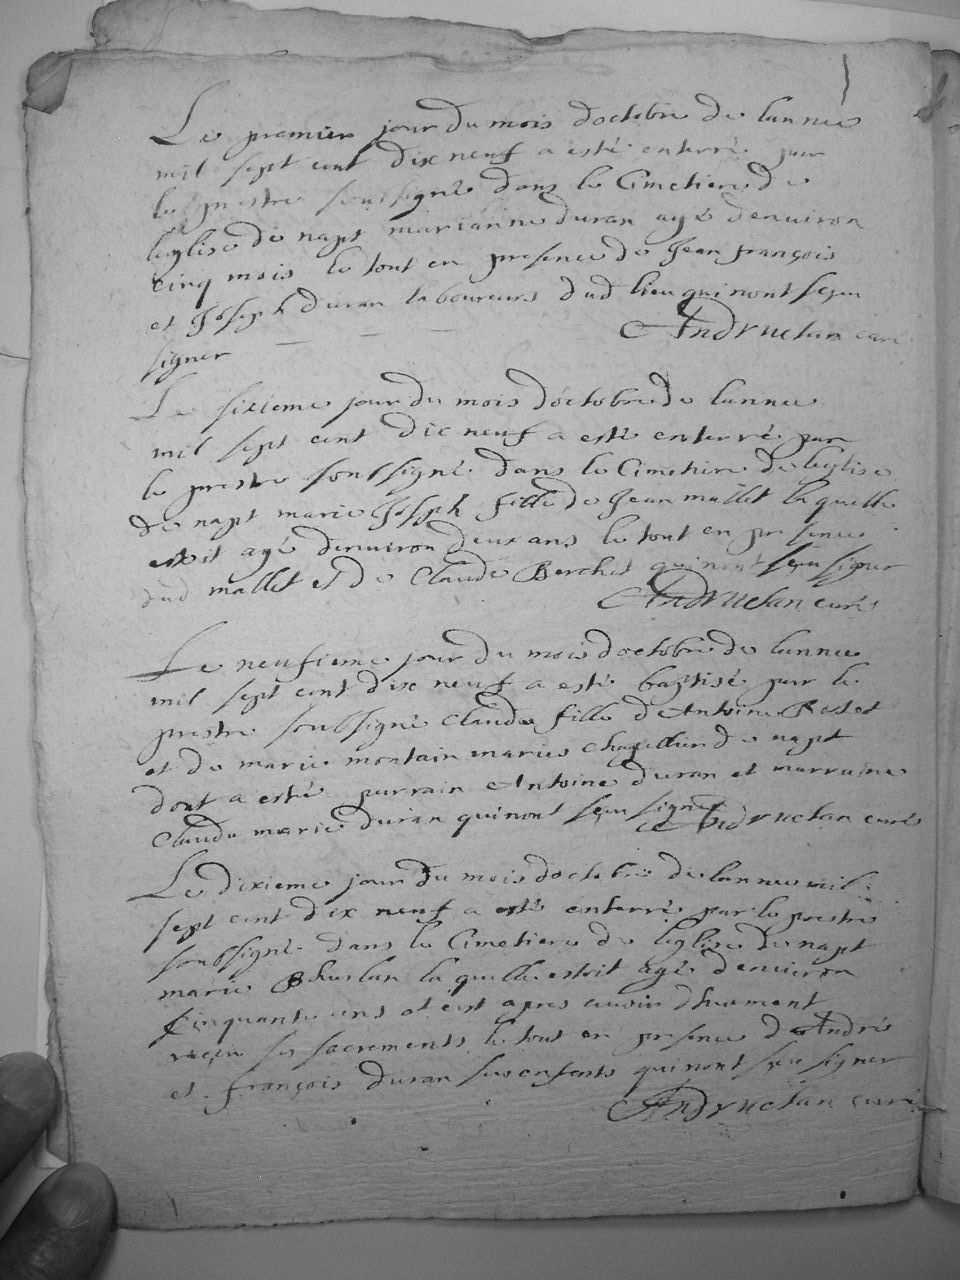 Le premier jour du mois doctobre de lannee
mil sept cent dix neuf a esté enterré par
le prestre soussigné dans le Cimetiere de
leglise de napt marianne duran agé denuiron
cinq mois le tout en presence de Jean françois
et Joseph duran laboureurs dud lieu qui nont sceu
signer
Andruetan curé
Le sixieme jour du mois doctobre de lannee
mil sept cent dix neuf a esté enterré par
le prestre soussigné dans le Cimetiere de leglise
de napt marie Joseph fille de Jean mallet laquelle
estoit agé denuiron deux ans le tout en presence
dud mallet et de Claude Berchet qui nont sceu signer
Andruetan curé
Le neufieme jour du mois doctobre de lannee
mil sept cent dix neuf a esté baptisé par le
prestre soussigné Claude fille dAntoine
et de marie montain maries de napt
dont a esté parrain Antoine duran et marraine
Claude marie duran qui nont sceu signer Andruetan curé
Le dixieme jour du mois doctobre de lannee mil
sept cent dix neuf a esté enterré par le prestre
soussigné dans le Cimetiere de leglise de napt
marie laquelle estoit agé denuiron
cinquante ans et est apres auoir
receu ses sacrements le tout en presence dAndré
et françois duran ses enfents qui nont sceu signer
Andruetan curé